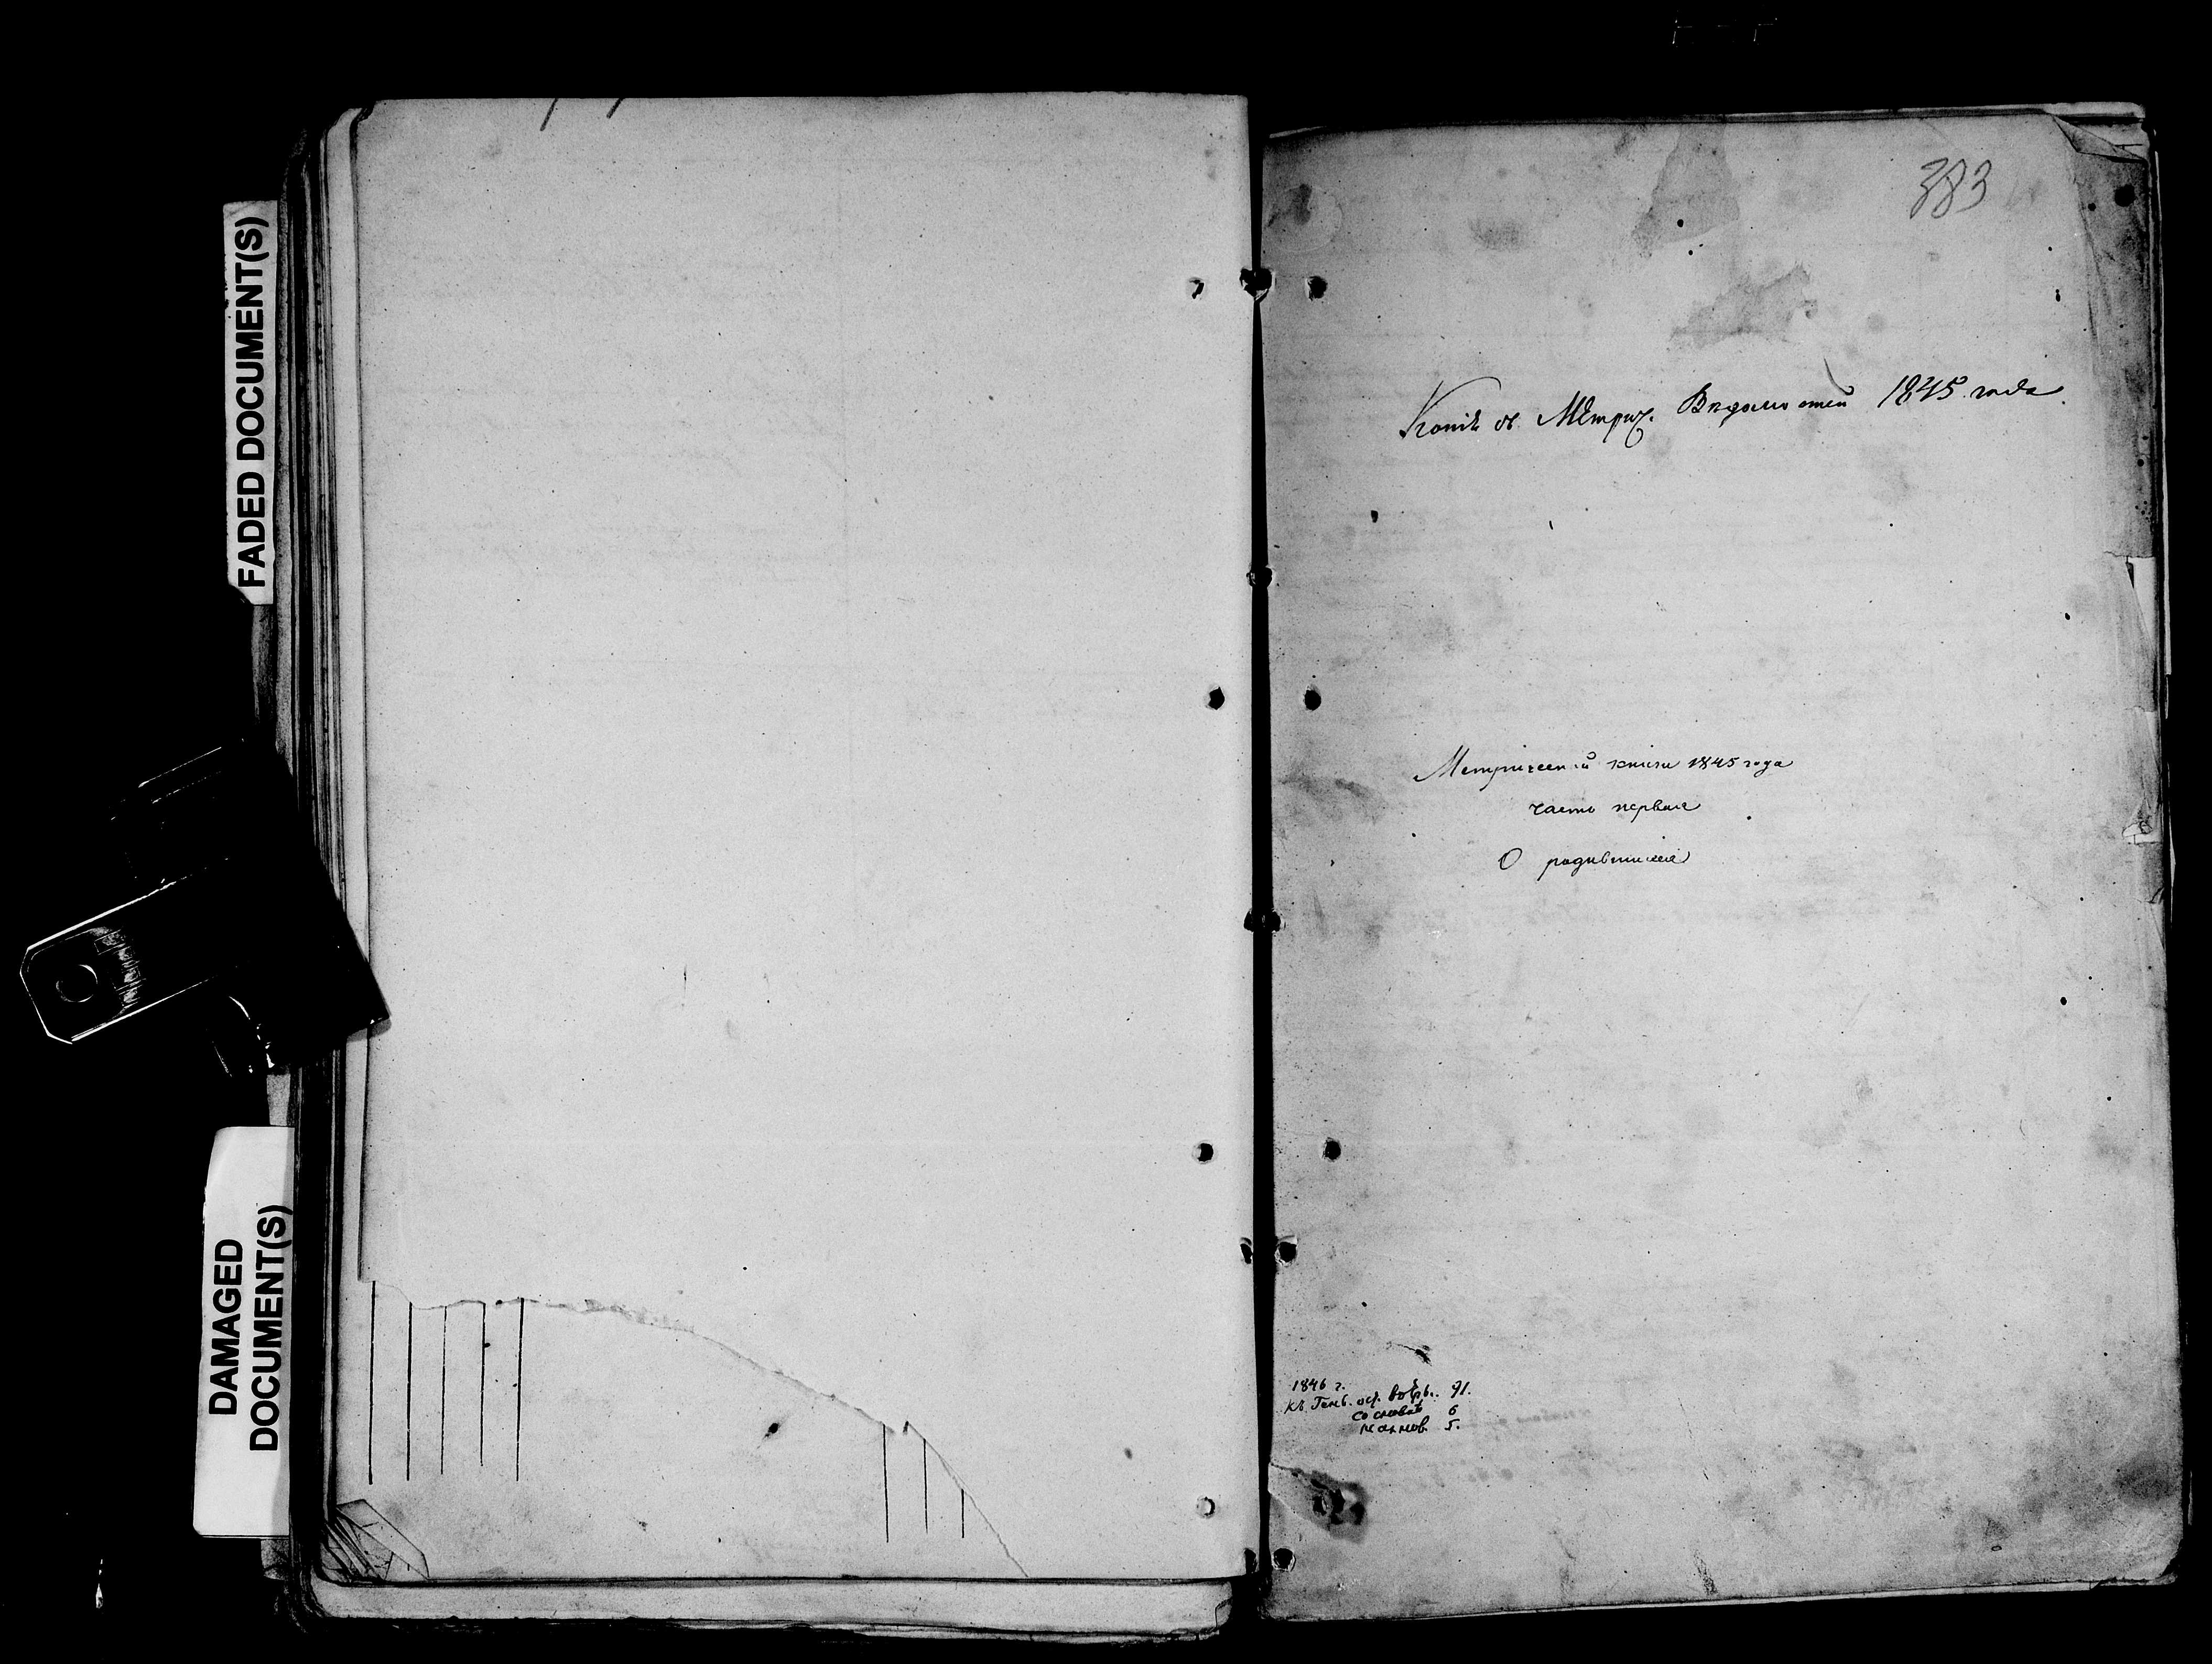 FADED DOCUMENT(S)
DAMAGED
DOCUMENT(S)
383
Копiя съ Метрич. Вѣдомостей 1845 года.
Метрической книги 1845 года
часть первая
О родившихся
1846 г.
Къ Генв. ост. 91.
6
5.